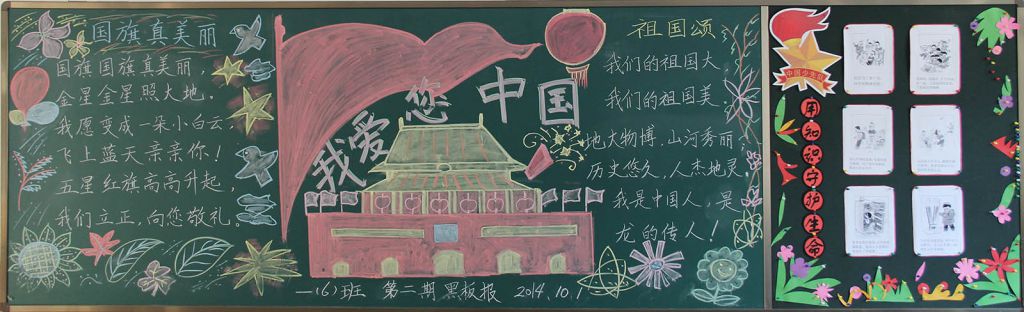 国旗真美丽
国旗国旗真美丽，
金星金星照大地。
我愿变成一朵小白云，
飞上蓝天亲亲你！
五星红旗高高升起，
我们立正，向您敬礼。
我爱您中国
祖国颂
我们的祖国大
我们的祖国美
地大物博，山河秀丽，
历史悠久，人杰地灵。
我是中国人，是
龙的传人！
一(6)班 第二期黑板报 2014.10.1
中国少先队
用知识守护生命